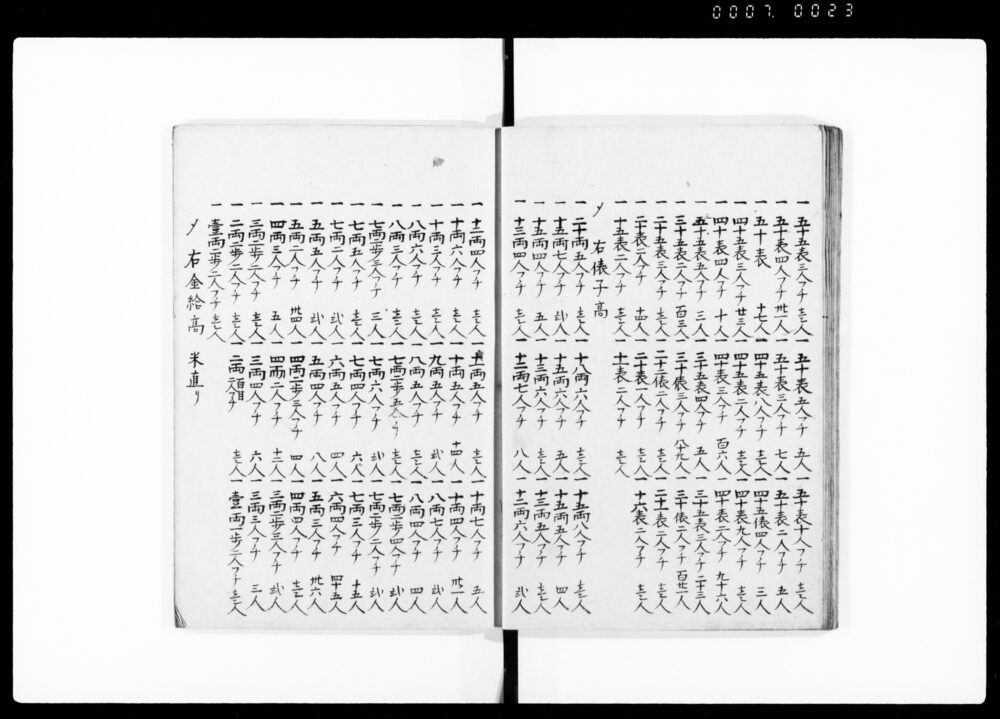 0007. 0023
一 五十五表三人フチ 壱人 一 五十表五人フチ 五人 一 五十表十人フチ 壱人
一 五十表四人フチ 卅一人 一 五十表三人フチ 七人 一 五十表二人フチ 五人
一 五十表 十七人 一 四十五表八人フチ 壱人 一 四十五俵四人フチ 三人
一 四十五表三人フチ 廿三人 一 四十五表二人フチ 壱人 一 四十表九人フチ 壱人
一 四十表四人フチ 十人 一 四十表三人フチ 百六人 一 四十表二人フチ 九十六人
一 五十五表五人フチ 三人 一 三十五表四人フチ 五人 一 三十五表三人フチ 二十三人
一 三十五表二人フチ 百三人 一 三十俵三人フチ 八十九人 一 三十俵二人フチ 百廿一人
一 二十五表三人フチ 壱人 一 二十二俵二人フチ 壱人 一 二十一表二人フチ 壱人
一 二十表二人フチ 十四人 一 二十表一人フチ 壱人 一 十六表二人フチ 壱人
一 十五表二人フチ 壱人 一 十一表二人フチ 壱人
〆 右俵子高
一 二十両五人フチ 壱人 一 十八両六人フチ 壱人 一 十五両八人フチ 壱人
一 十五両七人フチ 弐人 一 十五両六人フチ 五人 一 十五両五人フチ 四人
一 十五両四人フチ 五人 一 十三両六人フチ 壱人 一 十三両五人フチ 壱人
一 十三両四人フチ 壱人 一 十二両七人フチ 八人 一 十二両六人フチ 弐人
一 十二両四人フチ 壱人 一 十両五人フチ 壱人 一 十両七人フチ 五人
一 十両六人フチ 壱人 一 十両五人フチ 十四人 一 十両四人フチ 卅一人
一 十両三人フチ 壱人 一 九両五人フチ 弐人 一 八両七人フチ 弐人
一 八両六人フチ 壱人 一 八両五人フチ 壱人 一 八両四人フチ 四人
一 八両三人フチ 壱人 一 七両二歩五人フチ 壱人 一 七両二歩四人フチ 弐人
一 七両二歩三人フチ 三人 一 七両六人フチ 弐人 一 七両二歩二人フチ 弐人
一 七両五人フチ 壱人 一 七両四人フチ 六人 一 七両三人フチ 十五人
一 七両二人フチ 弐人 一 六両五人フチ 四人 一 六両四人フチ 四十五人
一 五両五人フチ 弐人 一 五両四人フチ 八人 一 五両三人フチ 卅六人
一 五両二人フチ 卅四人 一 四両二歩三人フチ 四人 一 四両四人フチ 壱人
一 四両三人フチ 五人 一 四両二人フチ 十二人 一 三両二歩三人フチ 弐人
一 三両二歩二人フチ 壱人 一 三両四人フチ 六人 一 三両三人フチ 三人
一 二両二歩二人フチ 壱人 一 二両 フチ 壱人 一 壱両一歩二人フチ 壱人
一 壱両二歩二人フチ 壱人
〆 右金給高 米直リ